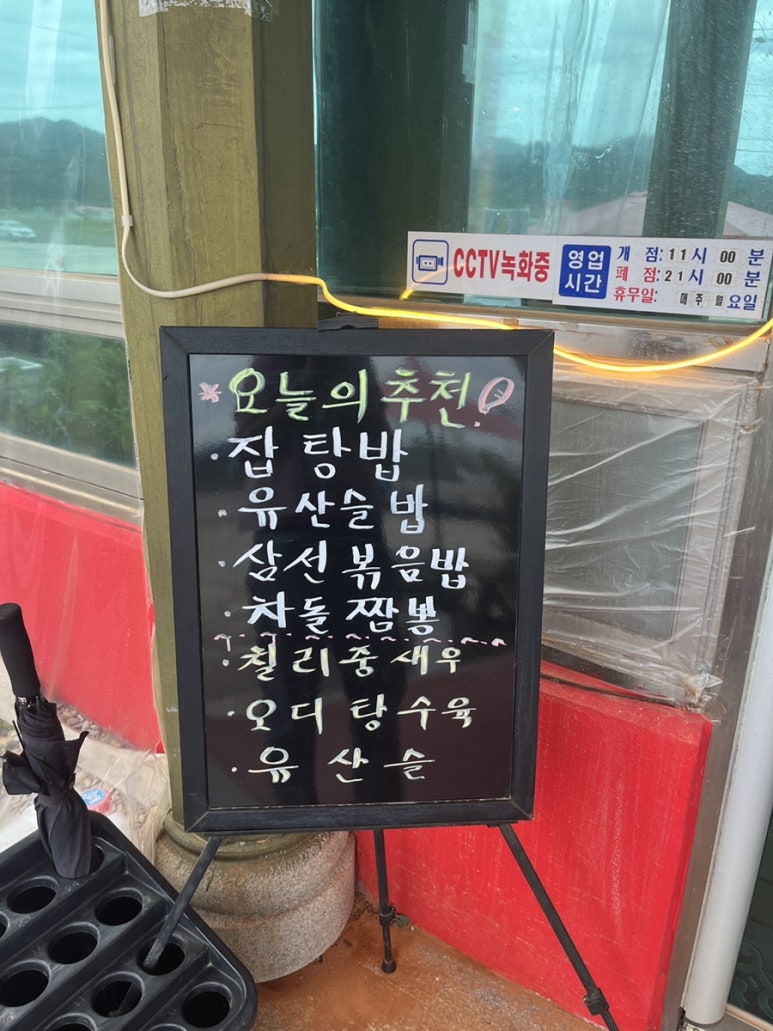 CCTV녹화중
영업시간
개 점: 11시 00분
폐 점: 21시 00분
휴무일: 매주 월요일
*오늘의추천
· 잡탕밥
· 유산슬밥
· 삼선볶음밥
· 차돌짬뽕
· 칠리중새우
· 오디탕수육
· 유산슬